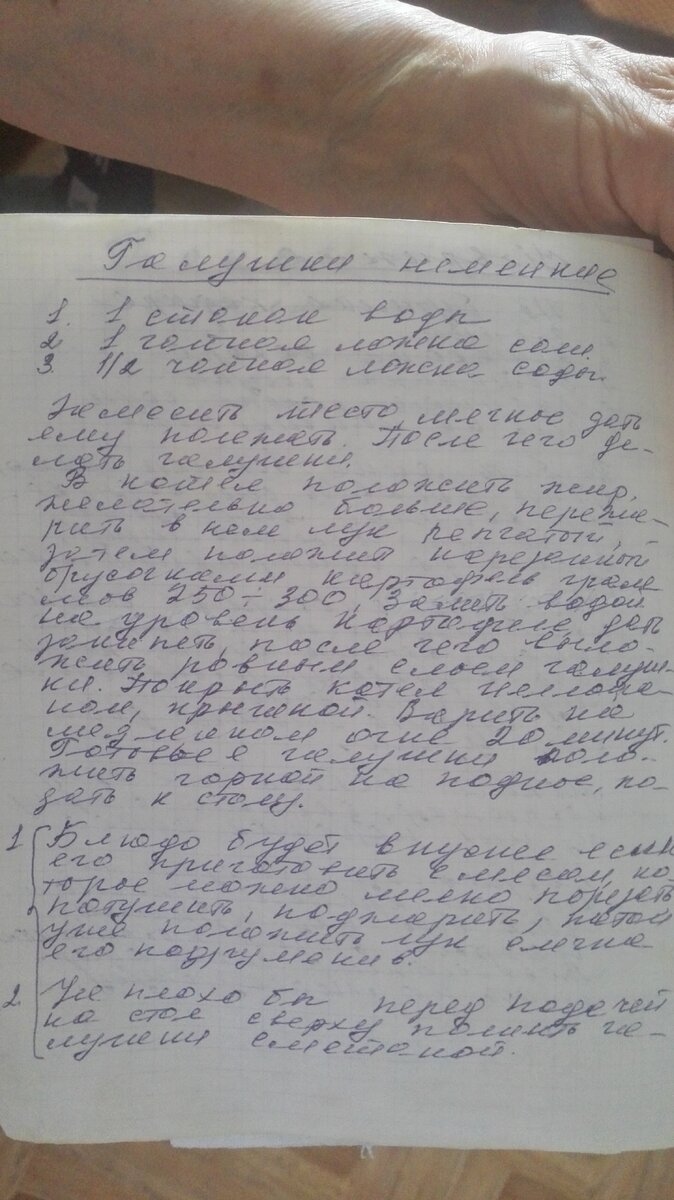 Галушки немецкие
1. 1 стакан воды
2 1 чайная ложка соли
3. 1/2 чайная ложка соды.
Замесить тесто мягкое дать
ему полежать. После чего де-
лать галушки.
В котел положить жир,
желательно больше, пережа-
рить в нем лук репчатый,
затем положит нарезанный
брусочками картофель грам
мов 250 ÷ 300, Залить водой
на уровень картофеля, дать
закипеть, после чего выло-
жить ровным слоем галуш-
ки. Покрыть котел целлофа-
ном, крышкой. Варить на
медленном огне 20 минут.
Готовые галушки поло-
жить горкой на поднос, по-
дать к столу.
1 Блюдо будет вкуснее если
его приготовить с мясом, ко-
торое можно мелко порезать
потушить, поджарить, потом
уже положить лук слегка
его подрумянив.
2 Не плохо бы перед подачей
на стол сверху полить га-
лушки сметаной.